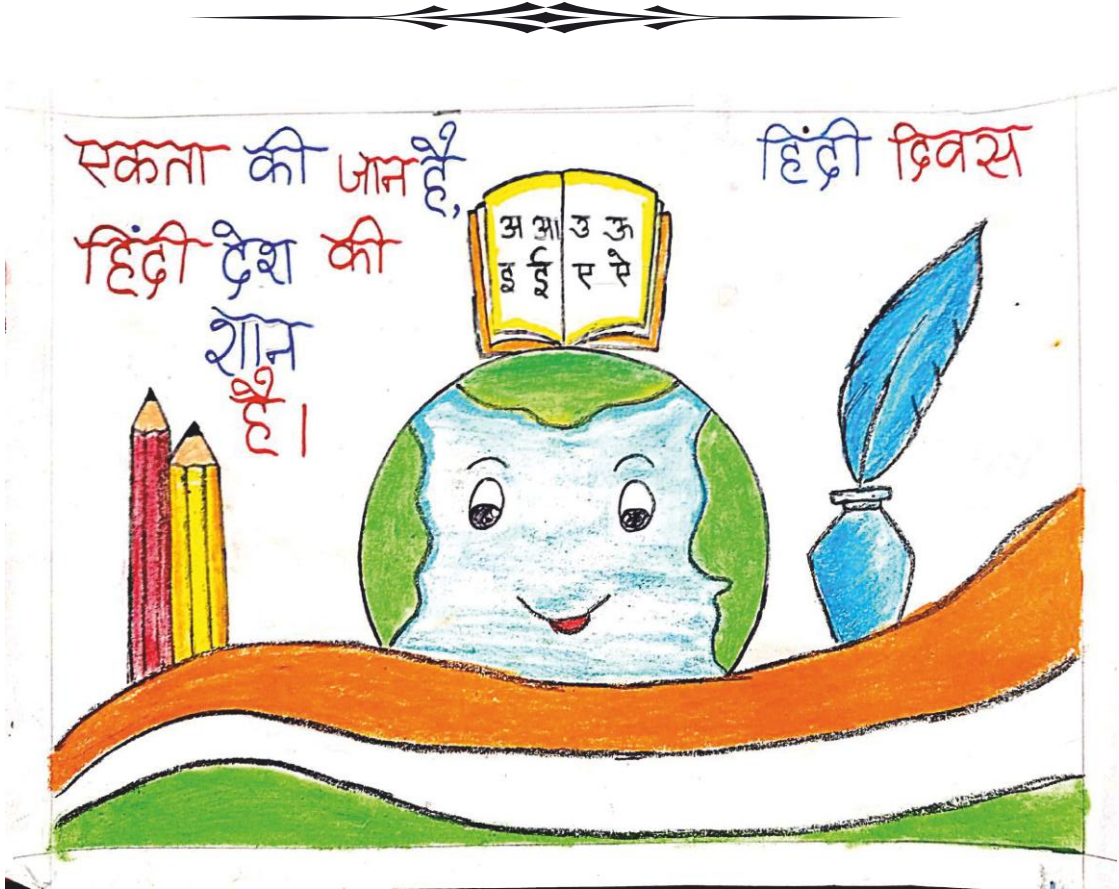 एकता की जान है,
हिंदी देश की
शान
है।
हिंदी दिवस
अ आ उ ऊ
इ ई ए ऐ